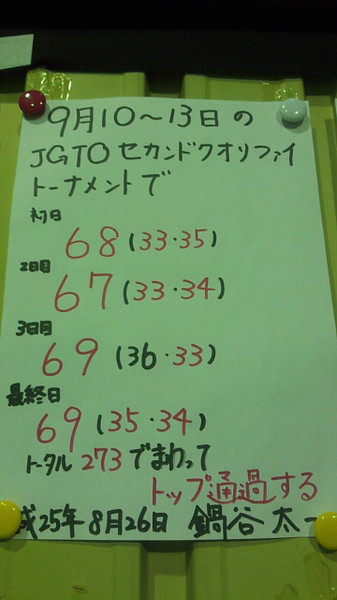 9月10～13日の
JGTOセカンドクオリファイ
トーナメントで
初日
68(33・35)
2日目
67(33・34)
3日目
69(36・33)
最終日
69(35・34)
トータル273でまわって
トップ通過する
成25年8月26日 鍋谷太一